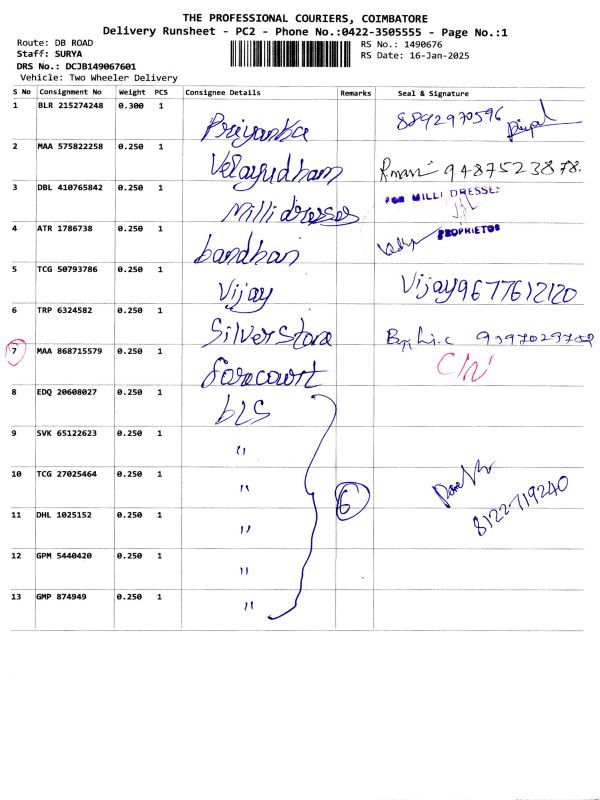 THE PROFESSIONAL COURIERS, COIMBATORE
Delivery Runsheet - PC2 - Phone No.:0422-3505555 - Page No.:1
Route: DB ROAD
Staff: SURYA
DRS No.: DCJB149067601
Vehicle: Two Wheeler Delivery
RS No.: 1490676
RS Date: 16-Jan-2025
S No Consignment No Weight PCS Consignee Details Remarks Seal & Signature
1 BLR 215274248 0.300 1 Priyanka 8892970596
2 MAA 575822258 0.250 1 Velayudham 9487523878.
3 DBL 410765842 0.250 1 Milli dresses FOR MILLI DRESSES
PROPRIETOR
4 ATR 1786738 0.250 1 bandhan
5 TCG 50793786 0.250 1 Vijay Vijay 9677612120
6 TRP 6324582 0.250 1 Silver Store
7 MAA 868715579 0.250 1
8 EDQ 20608027 0.250 1 bLS
9 SVK 65122623 0.250 1 "
10 TCG 27025464 0.250 1 " 6 8122719240
11 DHL 1025152 0.250 1 "
12 GPM 5440420 0.250 1 "
13 GMP 874949 0.250 1 "